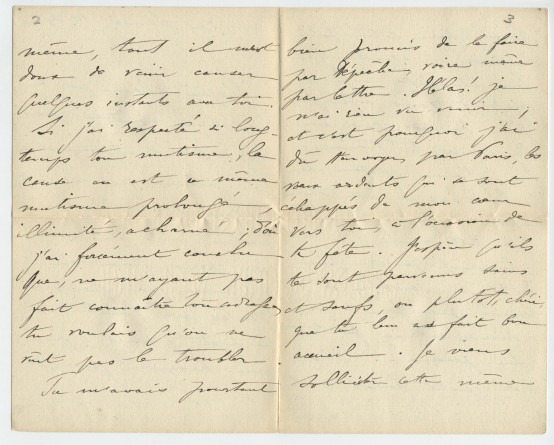 2
même, tant il m'est
doux de venir causer
quelques instants avec toi.
Si j'ai respecté si long-
temps ton mutisme, la
cause en est ce même
mutisme prolongé,
illimité, acharné ; d'où
j'ai forcément conclu
que, ne m'ayant pas
fait connaître ton adresse,
tu voulais qu'on ne
vînt pas le troubler
Tu m'avais pourtant
3
bien promis de le faire
par dépêche, voire même
par lettre. Hélas! je
n'ai rien vu venir ;
et c'est pourquoi j'ai
dû t'envoyer, par Paris, les
vœux ardents qui se sont
échappés de mon cœur
vers toi, à l'occasion de
ta fête. J'espère qu'ils
te sont parvenus sains
et saufs, ou plutôt, chéri,
que tu leur as fait bon
accueil. Je viens
solliciter cette même